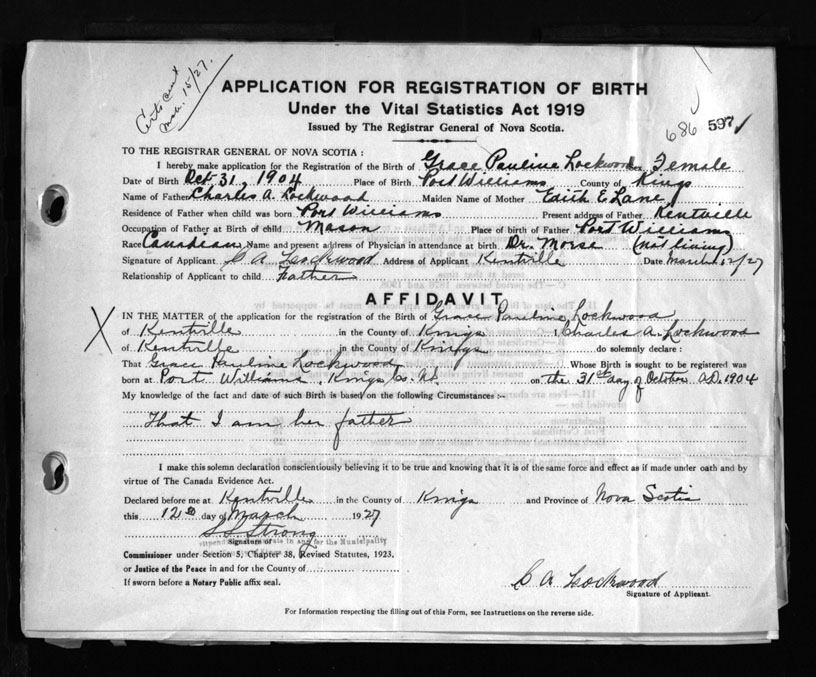 Certe sent
Mar. 15/27.
APPLICATION FOR REGISTRATION OF BIRTH
Under the Vital Statistics Act 1919
Issued by The Registrar General of Nova Scotia.
686 597
TO THE REGISTRAR GENERAL OF NOVA SCOTIA :
I hereby make application for the Registration of the Birth of Grace Pauline Lockwood Sex Female
Date of Birth Oct 31, 1904 Place of Birth Port Williams County of Kings
Name of Father Charles A. Lockwood Maiden Name of Mother Edith E Lane
Residence of Father when child was born Port Williams Present address of Father Kentville
Occupation of Father at Birth of child Mason Place of birth of Father Port Williams
Race Canadian Name and present address of Physician in attendance at birth Dr. Morse (not living)
Signature of Applicant C A Lockwood Address of Applicant Kentville Date March 12/27
Relationship of Applicant to child Father
AFFIDAVIT
X
IN THE MATTER of the application for the registration of the Birth of Grace Pauline Lockwood
of Kentville in the County of Kings I, Charles A. Lockwood
of Kentville in the County of Kings do solemnly declare :
That Grace Pauline Lockwood Whose Birth is sought to be registered was
born at Port Williams, Kings Co. N.S. on the 31st day of October A.D. 1904
My knowledge of the fact and date of such Birth is based on the following Circumstances :-
That I am her father
I make this solemn declaration conscientiously believing it to be true and knowing that it is of the same force and effect as if made under oath and by
virtue of The Canada Evidence Act.
Declared before me at Kentville in the County of Kings and Province of Nova Scotia
this 12th day of March 1927
S S Strong
Signature of
Commissioner under Section 5, Chapter 38, Revised Statutes, 1923.
or Justice of the Peace in and for the County of
If sworn before a Notary Public affix seal.
C A Lockwood
Signature of Applicant.
For Information respecting the filling out of this Form, see Instructions on the reverse side.